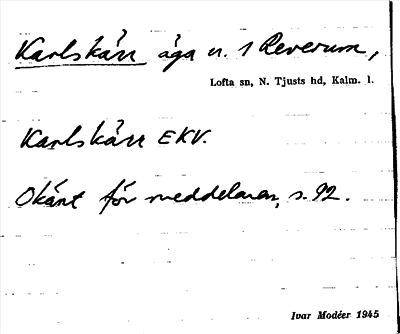 Karlskärr äga u. 1 Reverum,
Lofta sn, N. Tjusts hd, Kalm. l.
Karlskärr EKV.
Okänt för meddelaren, s. 92.
Ivar Modéer 1945